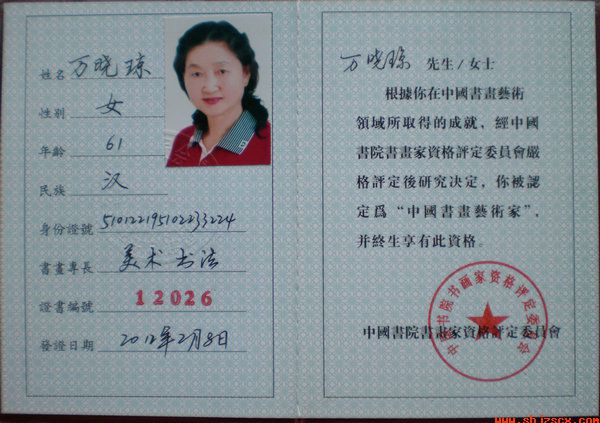 姓名 万晓琼
性别 女
年齡 61
民族 汉
身份證號 510122195102233224
書畫專長 美术 书法
證書編號 12026
發證日期 2012年2月8日
万晓琼 先生/女士
根據你在中國書畫藝術
領域所取得的成就，經中國
書院書畫家資格評定委員會嚴
格評定後研究决定，你被認
定爲“中國書畫藝術家”，
并終生享有此資格。
中國書院書畫家資格評定委員會
中国书院书画家资格评定委员会